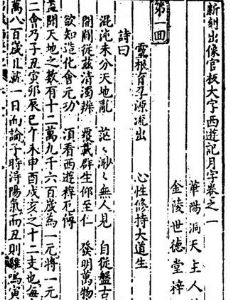 新刻出像官板大字西遊記月字卷之一
華陽洞天主人
金陵世德堂梓
第一回
靈根育孕源流出　心性修持大道生
詩曰
混沌未分天地亂　茫〻渺〻無人見　自從盤古
開闢從茲清濁辨　覆載群生仰至仁　發明萬物
欲知造化會元功　須看西遊釋厄傳
盖聞天地之數有十二萬九千六百歲為一元將一元
二會乃子丑寅卯辰巳午未申酉戌亥之十二支也每
萬八百歲且就一日而論子時得陽氣而丑則雞鳴寅